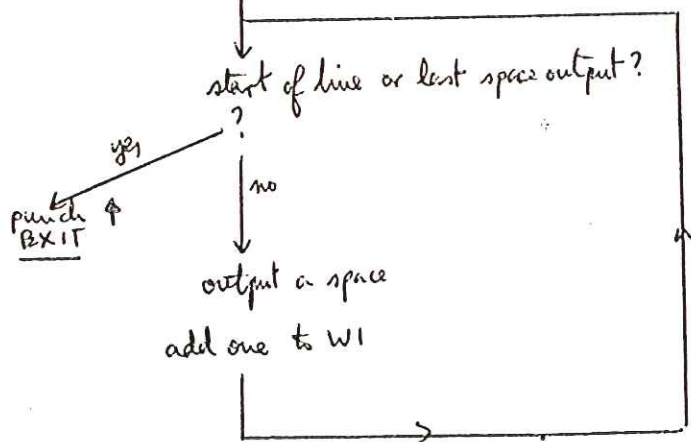 start of line or last space output?
?
yes
no
punch ↑
EXIT
output a space
add one to W1